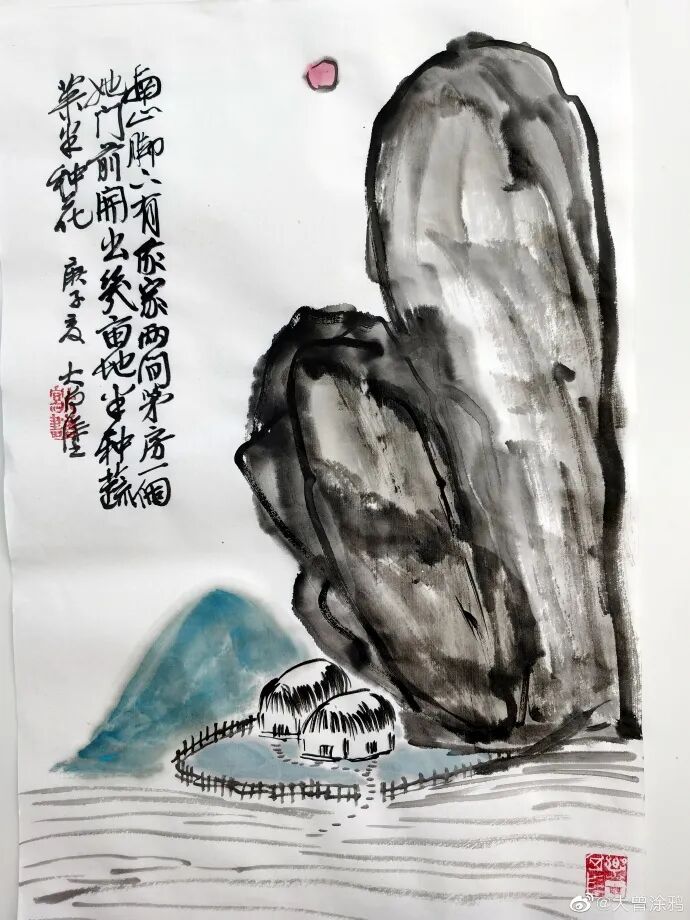 南山脚下有我家两间茅房一個
她门前開出幾亩地半种蔬
菜半种花
庚子夏 大曾塗
@大曾涂鸦